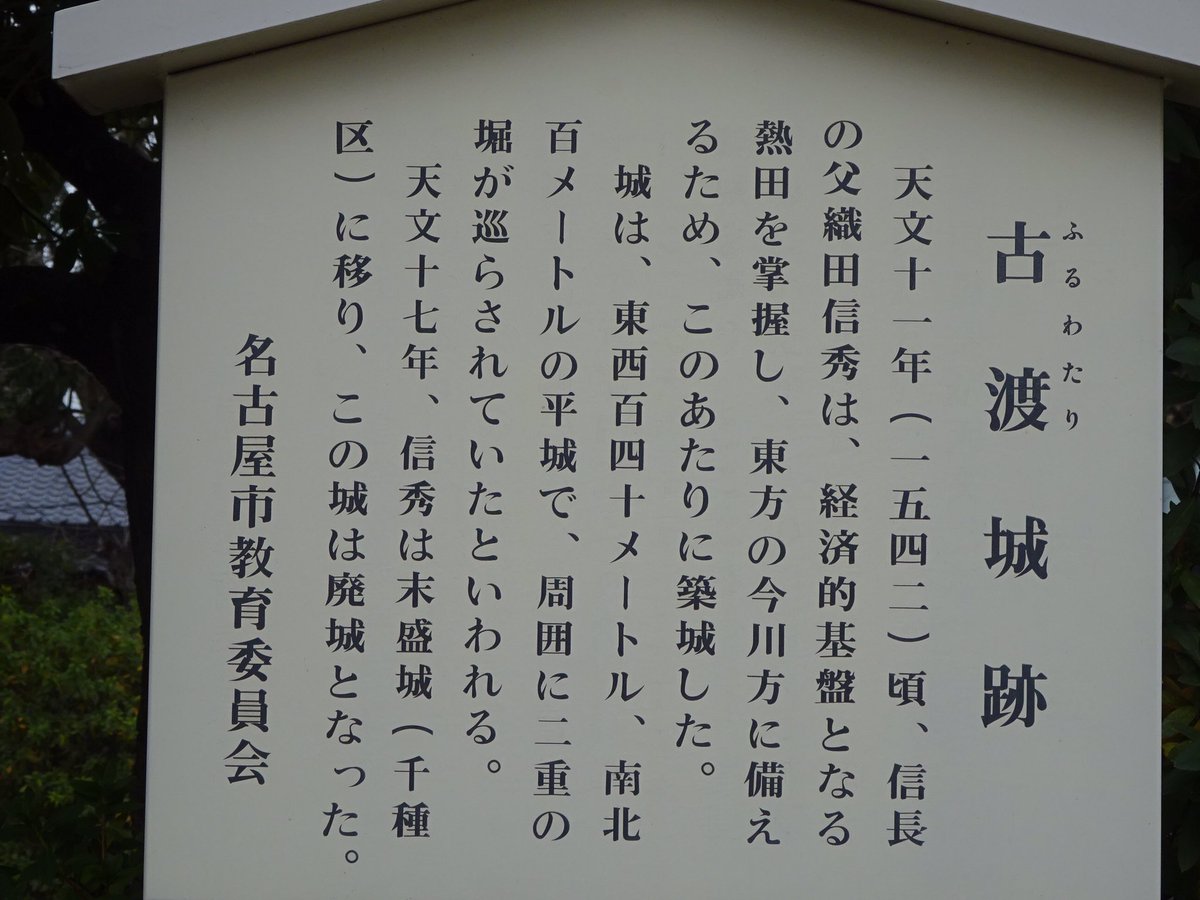 古渡城跡
ふるわたり
天文十一年（一五四二）頃、信長
の父織田信秀は、経済的基盤となる
熱田を掌握し、東方の今川方に備え
るため、このあたりに築城した。
城は、東西百四十メートル、南北
百メートルの平城で、周囲に二重の
堀が巡らされていたといわれる。
天文十七年、信秀は末盛城（千種
区）に移り、この城は廃城となった。
名古屋市教育委員会